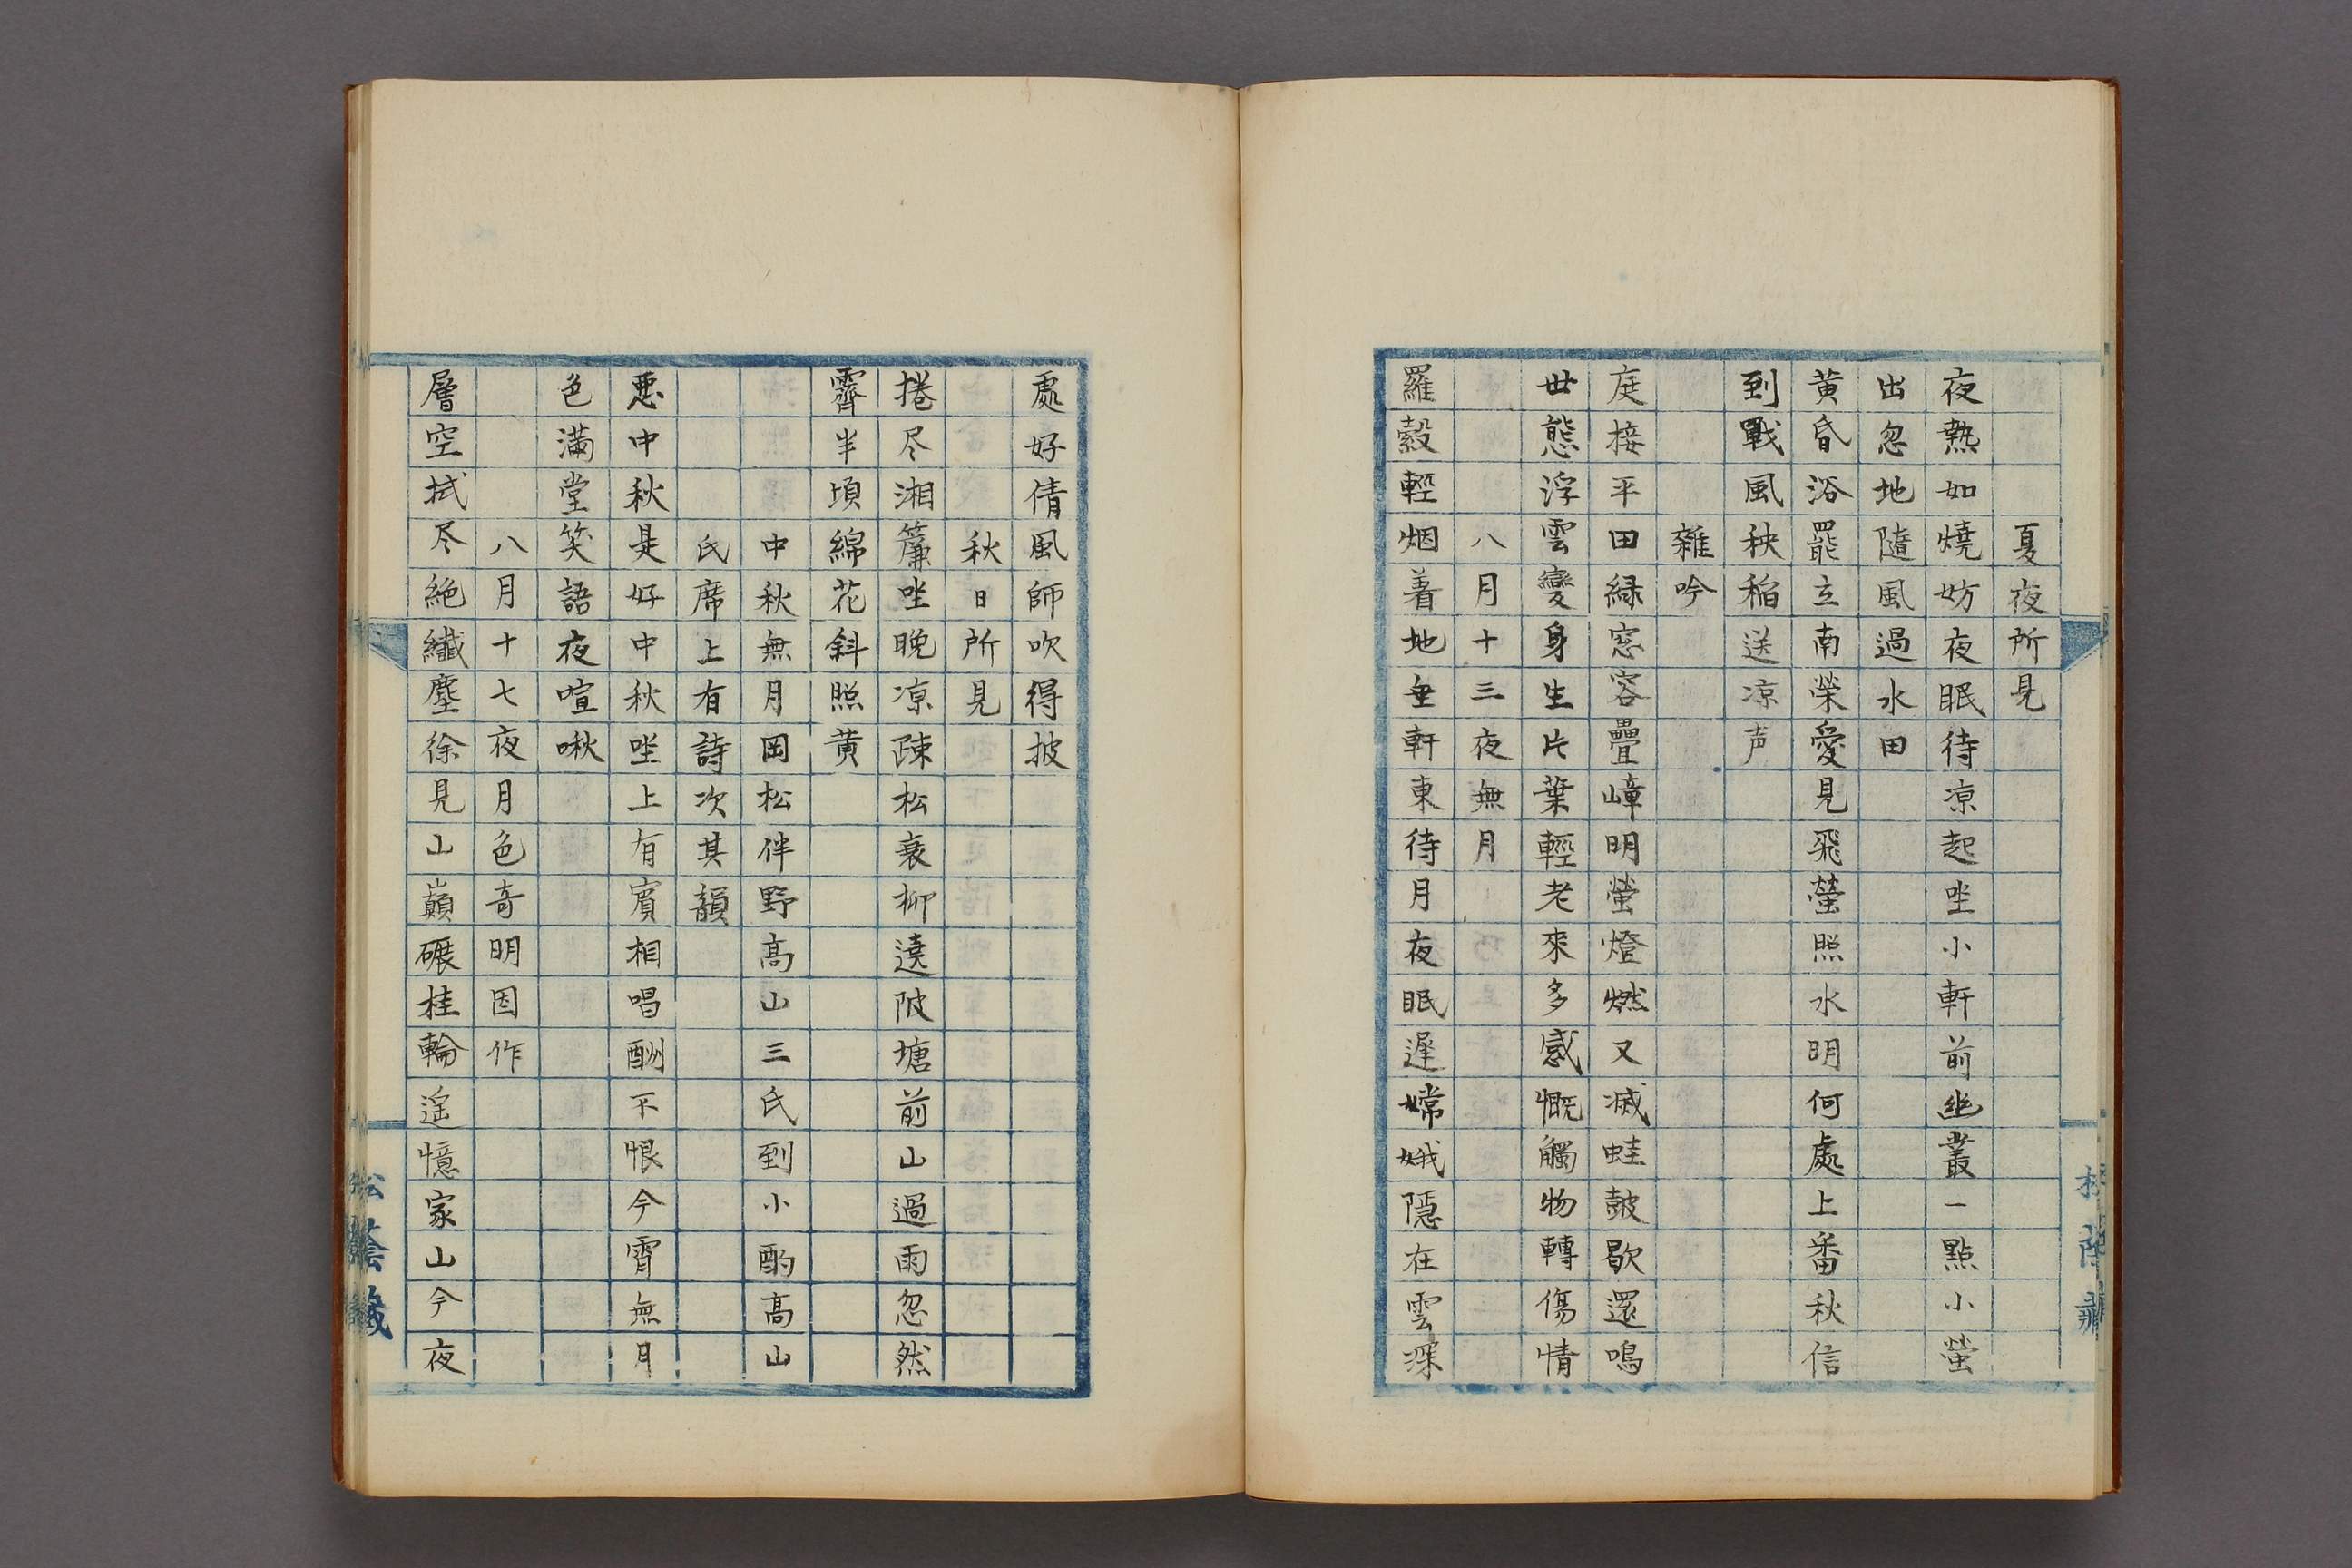 夏夜所見
夜熱如燒妨夜眠待凉起坐小軒前幽叢一點小螢
出忽地隨風過水田
黄昏浴罷立南榮愛見飛螢照水明何處上番秋信
到戰風秧稲送凉声
雜吟
庭接平田緑窓容疊嶂明螢燈燃又滅蛙皷歇還鳴
世態浮雲變身生片葉輕老來多感慨觸物轉傷情
八月十三夜無月
羅縠輕烟着地垂軒東待月夜眠遲嫦娥隱在雲深
處好倩風師吹得披
秋日所見
捲尽湘簾坐晚凉踈松衰柳遶陂塘前山過雨忽然
霽半頃綿花斜照黄
中秋無月岡松伴野髙山三氏到小酌髙山
氏席上有詩次其韻
悪中秋是好中秋坐上有賓相唱酬不恨今霄無月
色滿堂笑語夜喧啾
八月十七夜月色奇明因作
層空拭尽絶纎塵徐見山巓碾桂輪遥憶家山今夜
松蔭蔵